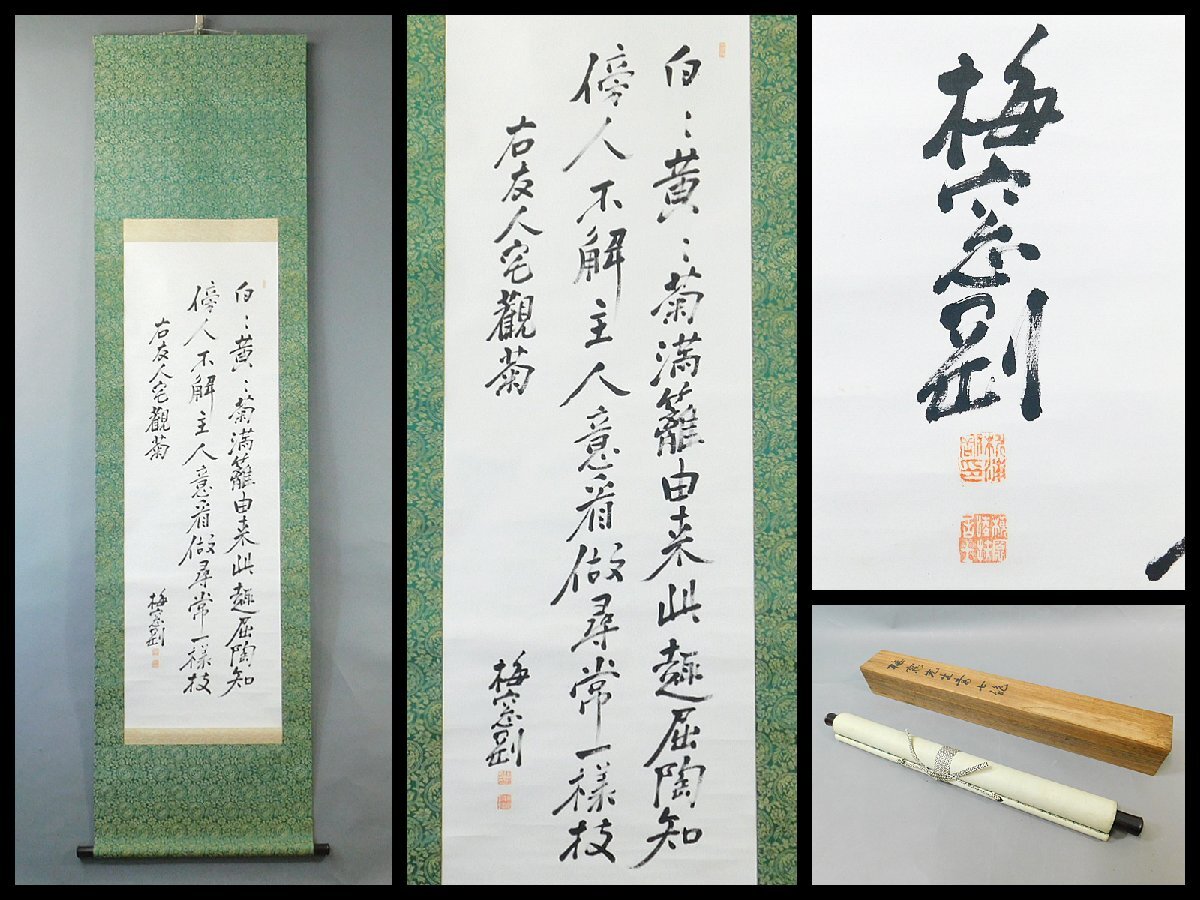 白〻黄〻菊満籬由来此趣屈陶知
傍人不解主人意看做尋常一様枝
右友人宅觀菊
梅窓剛